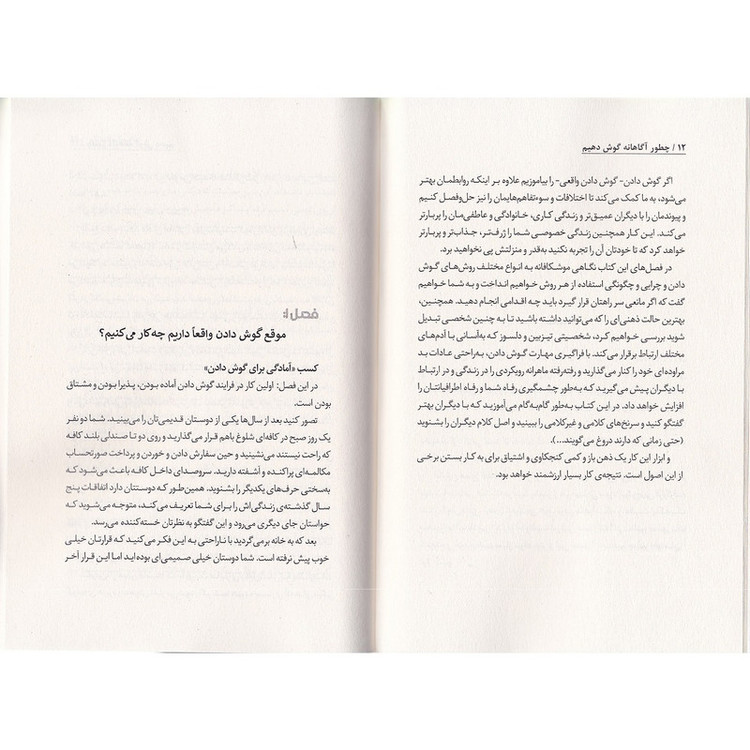 ۱۲ / چطور آگاهانه گوش دهیم
اگر گوش دادن- گوش دادن واقعی- را بیاموزیم علاوه بر اینکه روابطمان بهتر
می‌شود، به ما کمک می‌کند تا اختلافات و سوءتفاهم‌هایمان را نیز حل‌وفصل کنیم
و پیوندمان را با دیگران عمیق‌تر و زندگی کاری، خانوادگی و عاطفی‌مان را پربارتر
می‌کند. این کار همچنین زندگی خصوصی شما را ژرف‌تر، جذاب‌تر و پربارتر
خواهد کرد که تا خودتان آن را تجربه نکنید به‌قدر و منزلتش پی نخواهید برد.
در فصل‌های این کتاب نگاهی موشکافانه به انواع مختلف روش‌های گوش
دادن و چرایی و چگونگی استفاده از هر روش خواهیم انداخت و به شما خواهیم
گفت که اگر مانعی سر راهتان قرار گیرد باید چه اقدامی انجام دهید. همچنین،
بهترین حالت ذهنی‌ای را که می‌توانید داشته باشید تا به چنین شخصی تبدیل
شوید بررسی خواهیم کرد، شخصیتی تیزبین و دلسوز که به‌آسانی با آدم‌های
مختلف ارتباط برقرار می‌کند. با فراگیری مهارت گوش دادن، به‌راحتی عادات بد
مراوده‌ای خود را کنار می‌گذارید و رفته‌رفته ماهرانه رویکردی را در زندگی و در ارتباط
با دیگران پیش می‌گیرید که به‌طور چشمگیری رفاه شما و رفاه اطرافیانتان را
افزایش خواهد داد. در این کتاب به‌طور گام‌به‌گام می‌آموزید که با دیگران بهتر
گفتگو کنید و سرنخ‌های کلامی و غیرکلامی را ببینید و اصل کلام دیگران را بشنوید
(حتی زمانی که دارند دروغ می‌گویند...).
و ابزار این کار یک ذهن باز و کمی کنجکاوی و اشتیاق برای به کار بستن برخی
از این اصول است. نتیجه‌ی کار بسیار ارزشمند خواهد بود.
فصل ۱:
موقع گوش دادن واقعاً داریم چه‌کار می‌کنیم؟
کسب «آمادگی برای گوش دادن»
در این فصل: اولین کار در فرایند گوش دادن آماده بودن، پذیرا بودن و مشتاق
بودن است.
تصور کنید بعد از سال‌ها یکی از دوستان قدیمی‌تان را می‌بینید. شما دو نفر
یک روز صبح در کافه‌ای شلوغ باهم قرار می‌گذارید و روی دو تا صندلی بلند کافه
که راحت نیستند می‌نشینید و حین سفارش دادن و خوردن و پرداخت صورتحساب
مکالمه‌ای پراکنده و آشفته دارید. سروصدای داخل کافه باعث می‌شود که
به‌سختی حرف‌های یکدیگر را بشنوید. همین‌طور که دوستتان دارد اتفاقات پنج
سال گذشته‌ی زندگی‌اش را برای شما تعریف می‌کند، متوجه می‌شوید که
حواستان جای دیگری می‌رود و این گفتگو به نظرتان خسته‌کننده می‌رسد.
بعد که به خانه برمی‌گردید با ناراحتی به این فکر می‌کنید که قرارتان خیلی
خوب پیش نرفته است. شما دوستان خیلی صمیمی‌ای بوده‌اید اما این قرار آخر